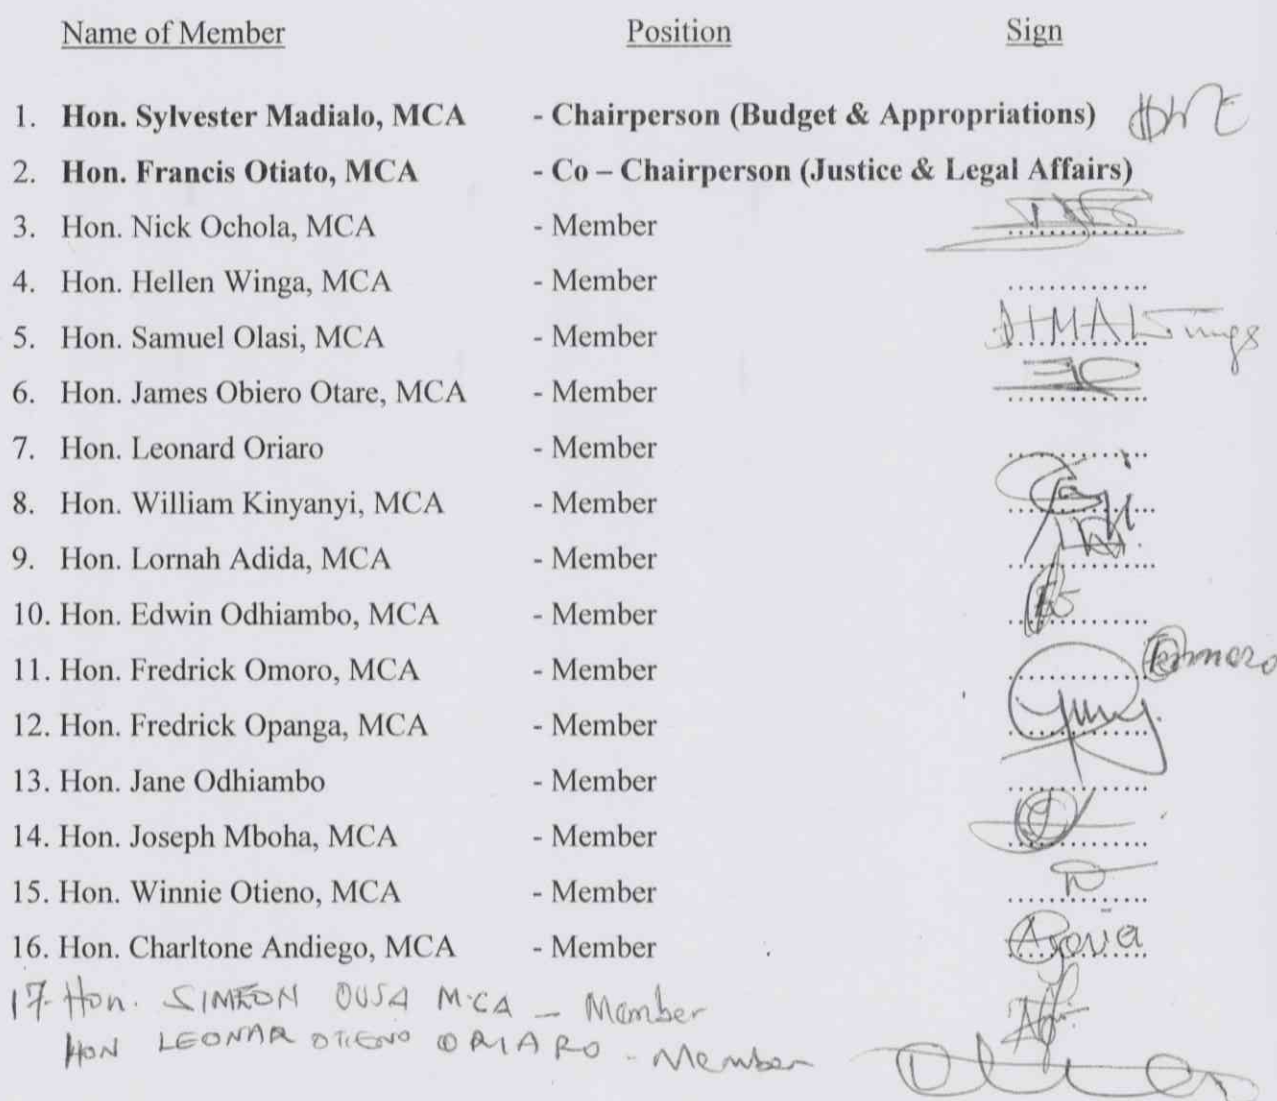 Name of Member Position Sign
1. Hon. Sylvester Madialo, MCA - Chairperson (Budget & Appropriations)
2. Hon. Francis Otiato, MCA - Co – Chairperson (Justice & Legal Affairs)
3. Hon. Nick Ochola, MCA - Member ..............
4. Hon. Hellen Winga, MCA - Member ..............
5. Hon. Samuel Olasi, MCA - Member ..............
6. Hon. James Obiero Otare, MCA - Member ..............
7. Hon. Leonard Oriaro - Member ..............
8. Hon. William Kinyanyi, MCA - Member ..............
9. Hon. Lornah Adida, MCA - Member ..............
10. Hon. Edwin Odhiambo, MCA - Member ..............
11. Hon. Fredrick Omoro, MCA - Member ..............
12. Hon. Fredrick Opanga, MCA - Member ..............
13. Hon. Jane Odhiambo - Member ..............
14. Hon. Joseph Mboha, MCA - Member ..............
15. Hon. Winnie Otieno, MCA - Member ..............
16. Hon. Charltone Andiego, MCA - Member ..............
17. Hon. SIMEON OUSA M.CA – Member
HON LEONAR OTIENO ORIARO - Member